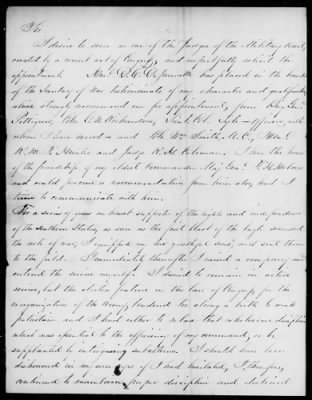 I desire to serve as one of the Judges of the Military Court,
created by a recent act of Congress, and respectfully solicit the
appointment. Hon. D. C. DeJarnette has placed in the hands
of the Secretary of War testimonials of my character and qualifications,
which strongly recommend me for appointment, from Brig. Genl
Pettigrew, officers, with
whom I have served and Wm. Smith, M. C., Hon.
R. M. T. Hunter and Judge R. H. Coleman. I have the honor
of the friendship of my oldest commander Maj. Genl.
and could procure a recommendation from him also, had I
time to communicate with him.
For a series of years an earnest supporter of the rights and independence
of the Southern States, as soon as the first blast of the bugle sounded
the note of war, I equipped my two youthful sons, and sent them
to the field. Immediately thereafter I raised a company and
entered the service myself. I desired to remain in active
service, but the elective feature in the law of Congress for the
reorganization of the Army, tendered too along a
patriotism and I had either to relax that wholesome discipline
which was essential to the efficiency of my command, or be
supplanted by intriguing subalterns. I should have been
dishonored in my own eyes if I had hesitated. I, therefore,
continued to maintain proper discipline and declined